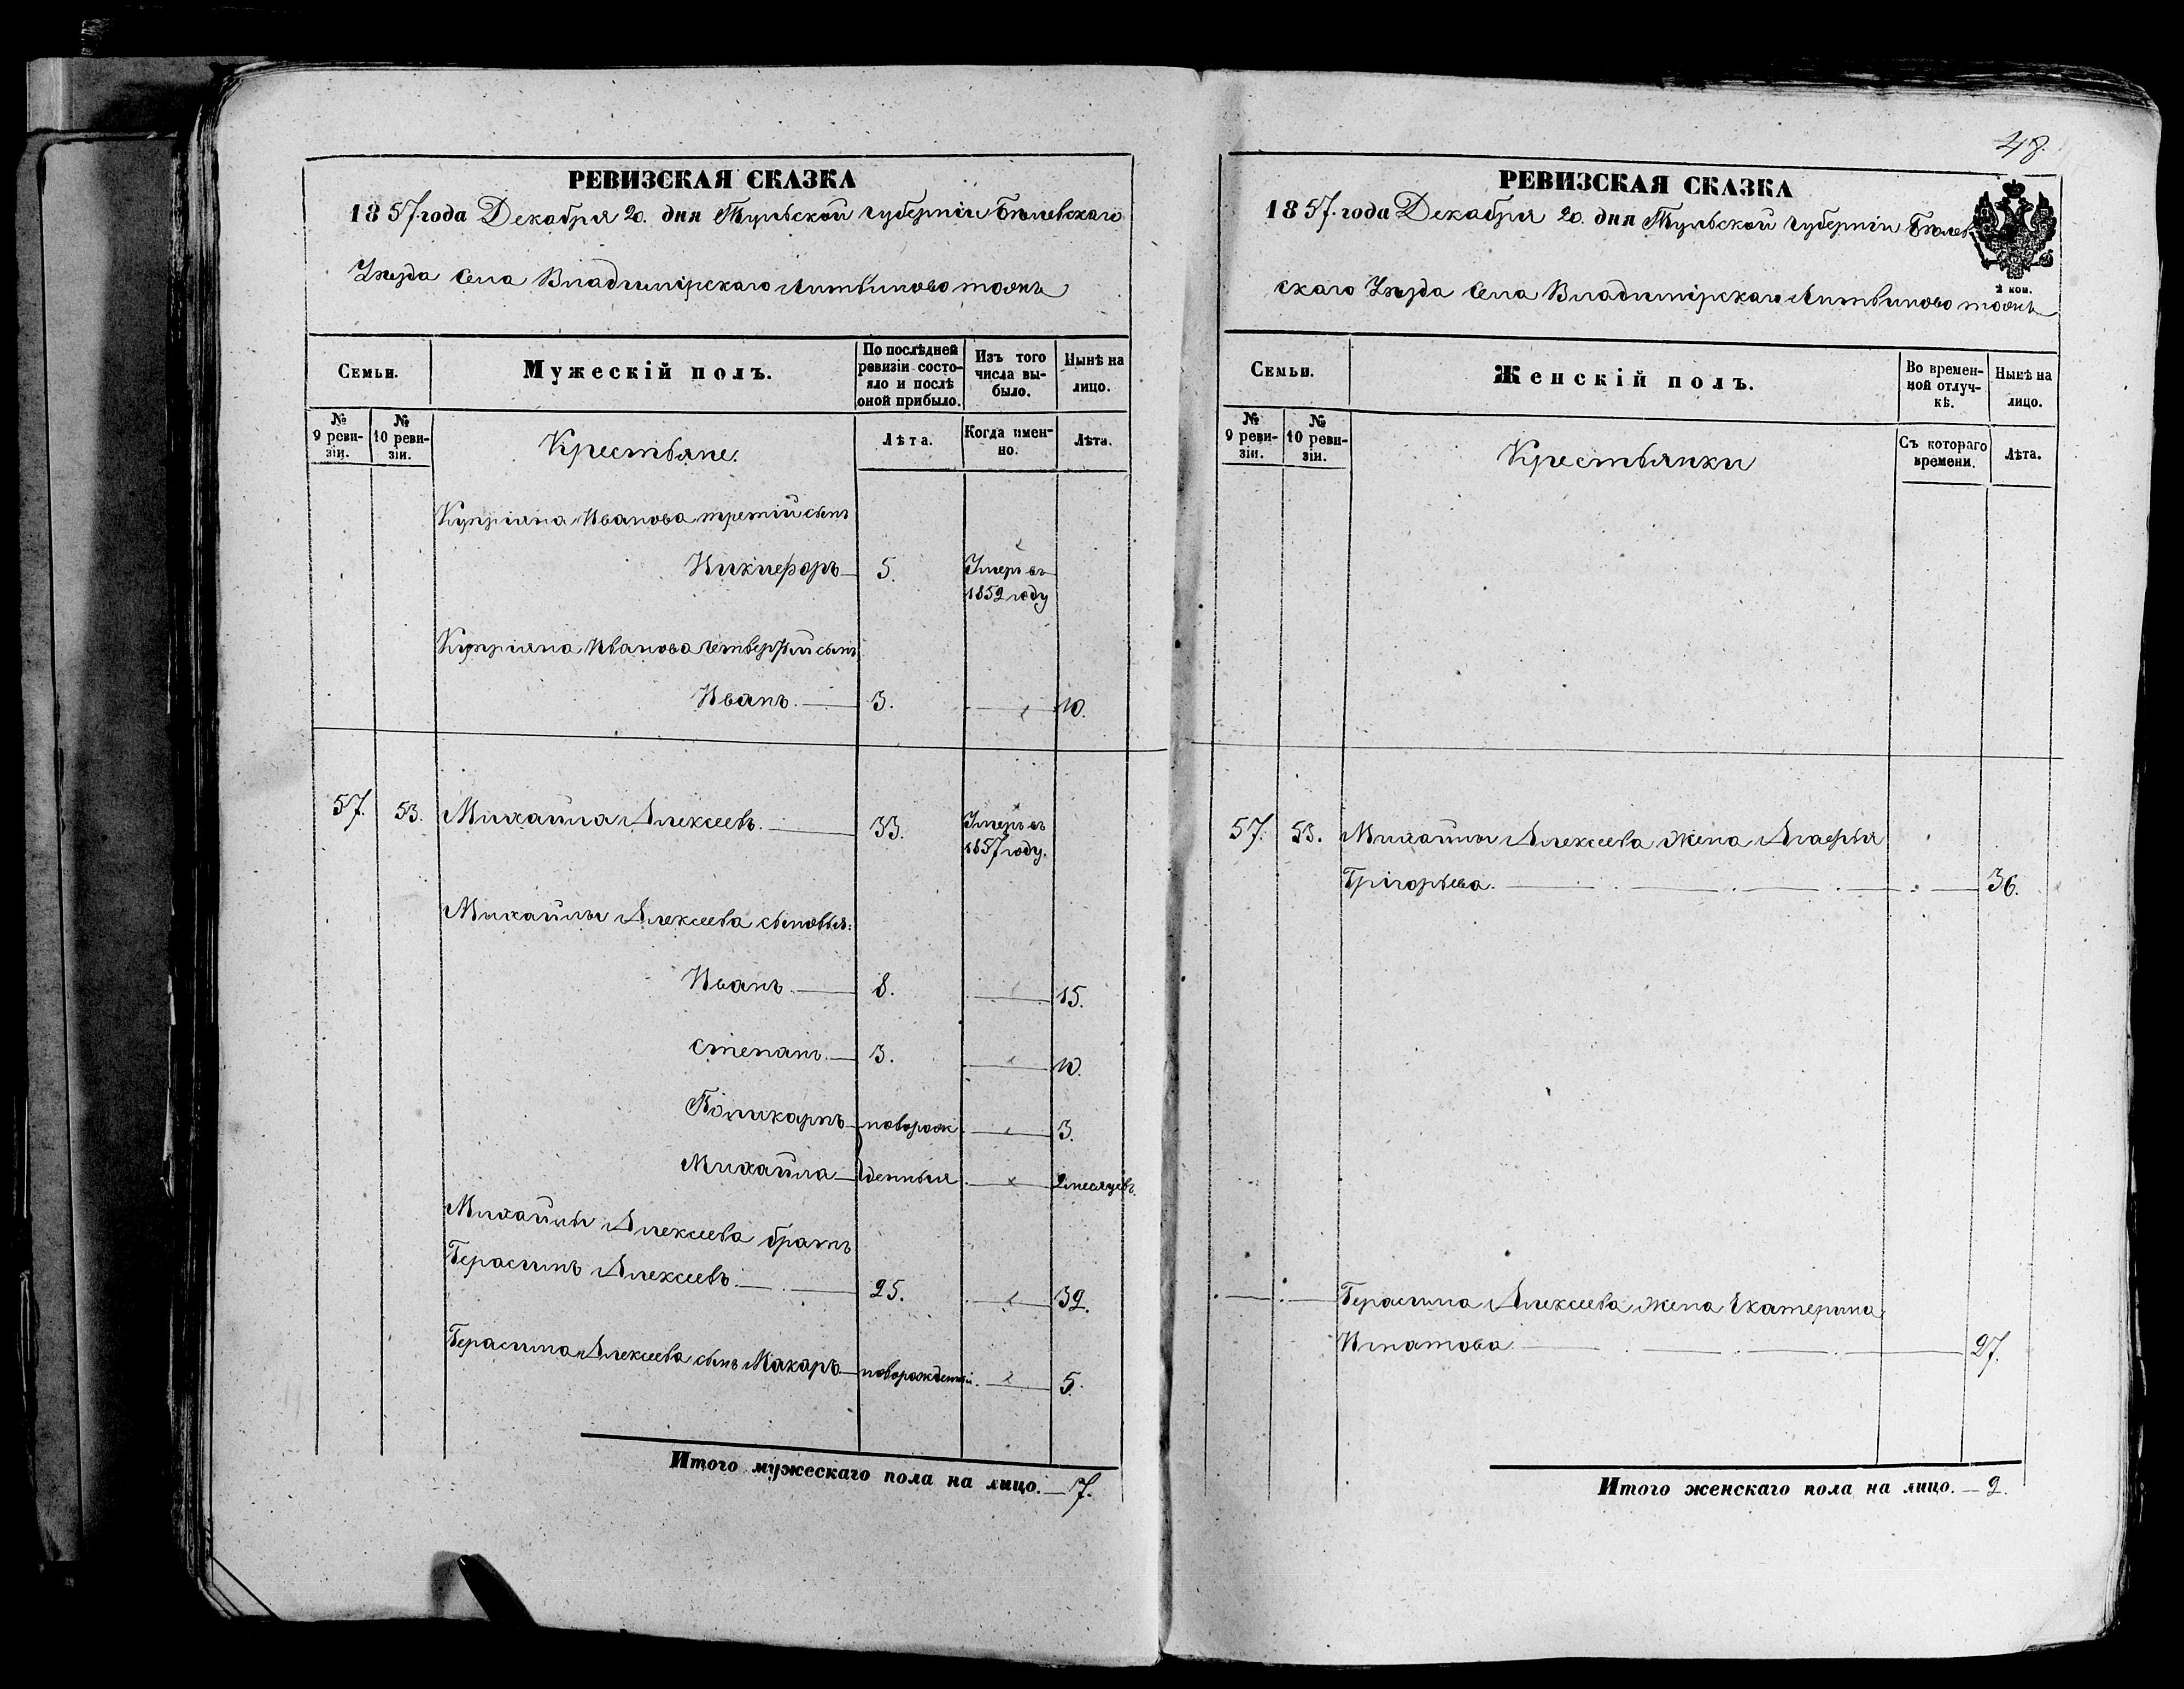 РЕВИЗСКАЯ СКАЗКА
1857. года Декабря 20. дня Тульской губерніи Бѣлевскаго
Уѣзда Села Владимірскаго Литвиново тожъ
Семьи.
Мужескій полъ.
По послѣдней ревизіи состояло и послѣ оной прибыло.
Изъ того числа выбыло.
Нынѣ на лицо.
№ 9 ревизіи.
№ 10 ревизіи.
Крестьяне.
Лѣта.
Когда именно.
Лѣта.
Купріяна Иванова третій сынъ
Никифоръ — 5. Умеръ въ
1852 году
Купріяна Иванова четвертый сынъ
Иванъ. — 3. — 10.
57. 53. Михайла Алексеевъ. — 33. Умеръ въ
1857 году.
Михайлы Алексеева сыновья:
Иванъ. — 8. — 15.
Степанъ. — 3. — 10.
Поликарпъ — новорож — 3.
Михайла — денныя — 2 месяцевъ.
Михайлы Алексеева братъ
Герасимъ Алексеевъ. — 25. — 32.
Герасима Алексеева сынъ Макаръ. — новорожденный. — 5.
Итого мужескаго пола на лицо. — 7.
48.
РЕВИЗСКАЯ СКАЗКА
1857. года Декабря 20. дня Тульской губерніи Бѣлев-
скаго Уѣзда Села Владимірскаго Литвиново тожъ
2 коп.
Семьи.
Женскій полъ.
Во временной отлучкѣ.
Нынѣ на лицо.
№ 9 ревизіи.
№ 10 ревизіи.
Крестьянки
Съ котораго времени.
Лѣта.
57. 53. Михайлы Алексеева жена Агафья
Григорьева. — 36.
Герасима Алексеева жена Екатерина
Игнатова. — 27.
Итого женскаго пола на лицо. — 2.